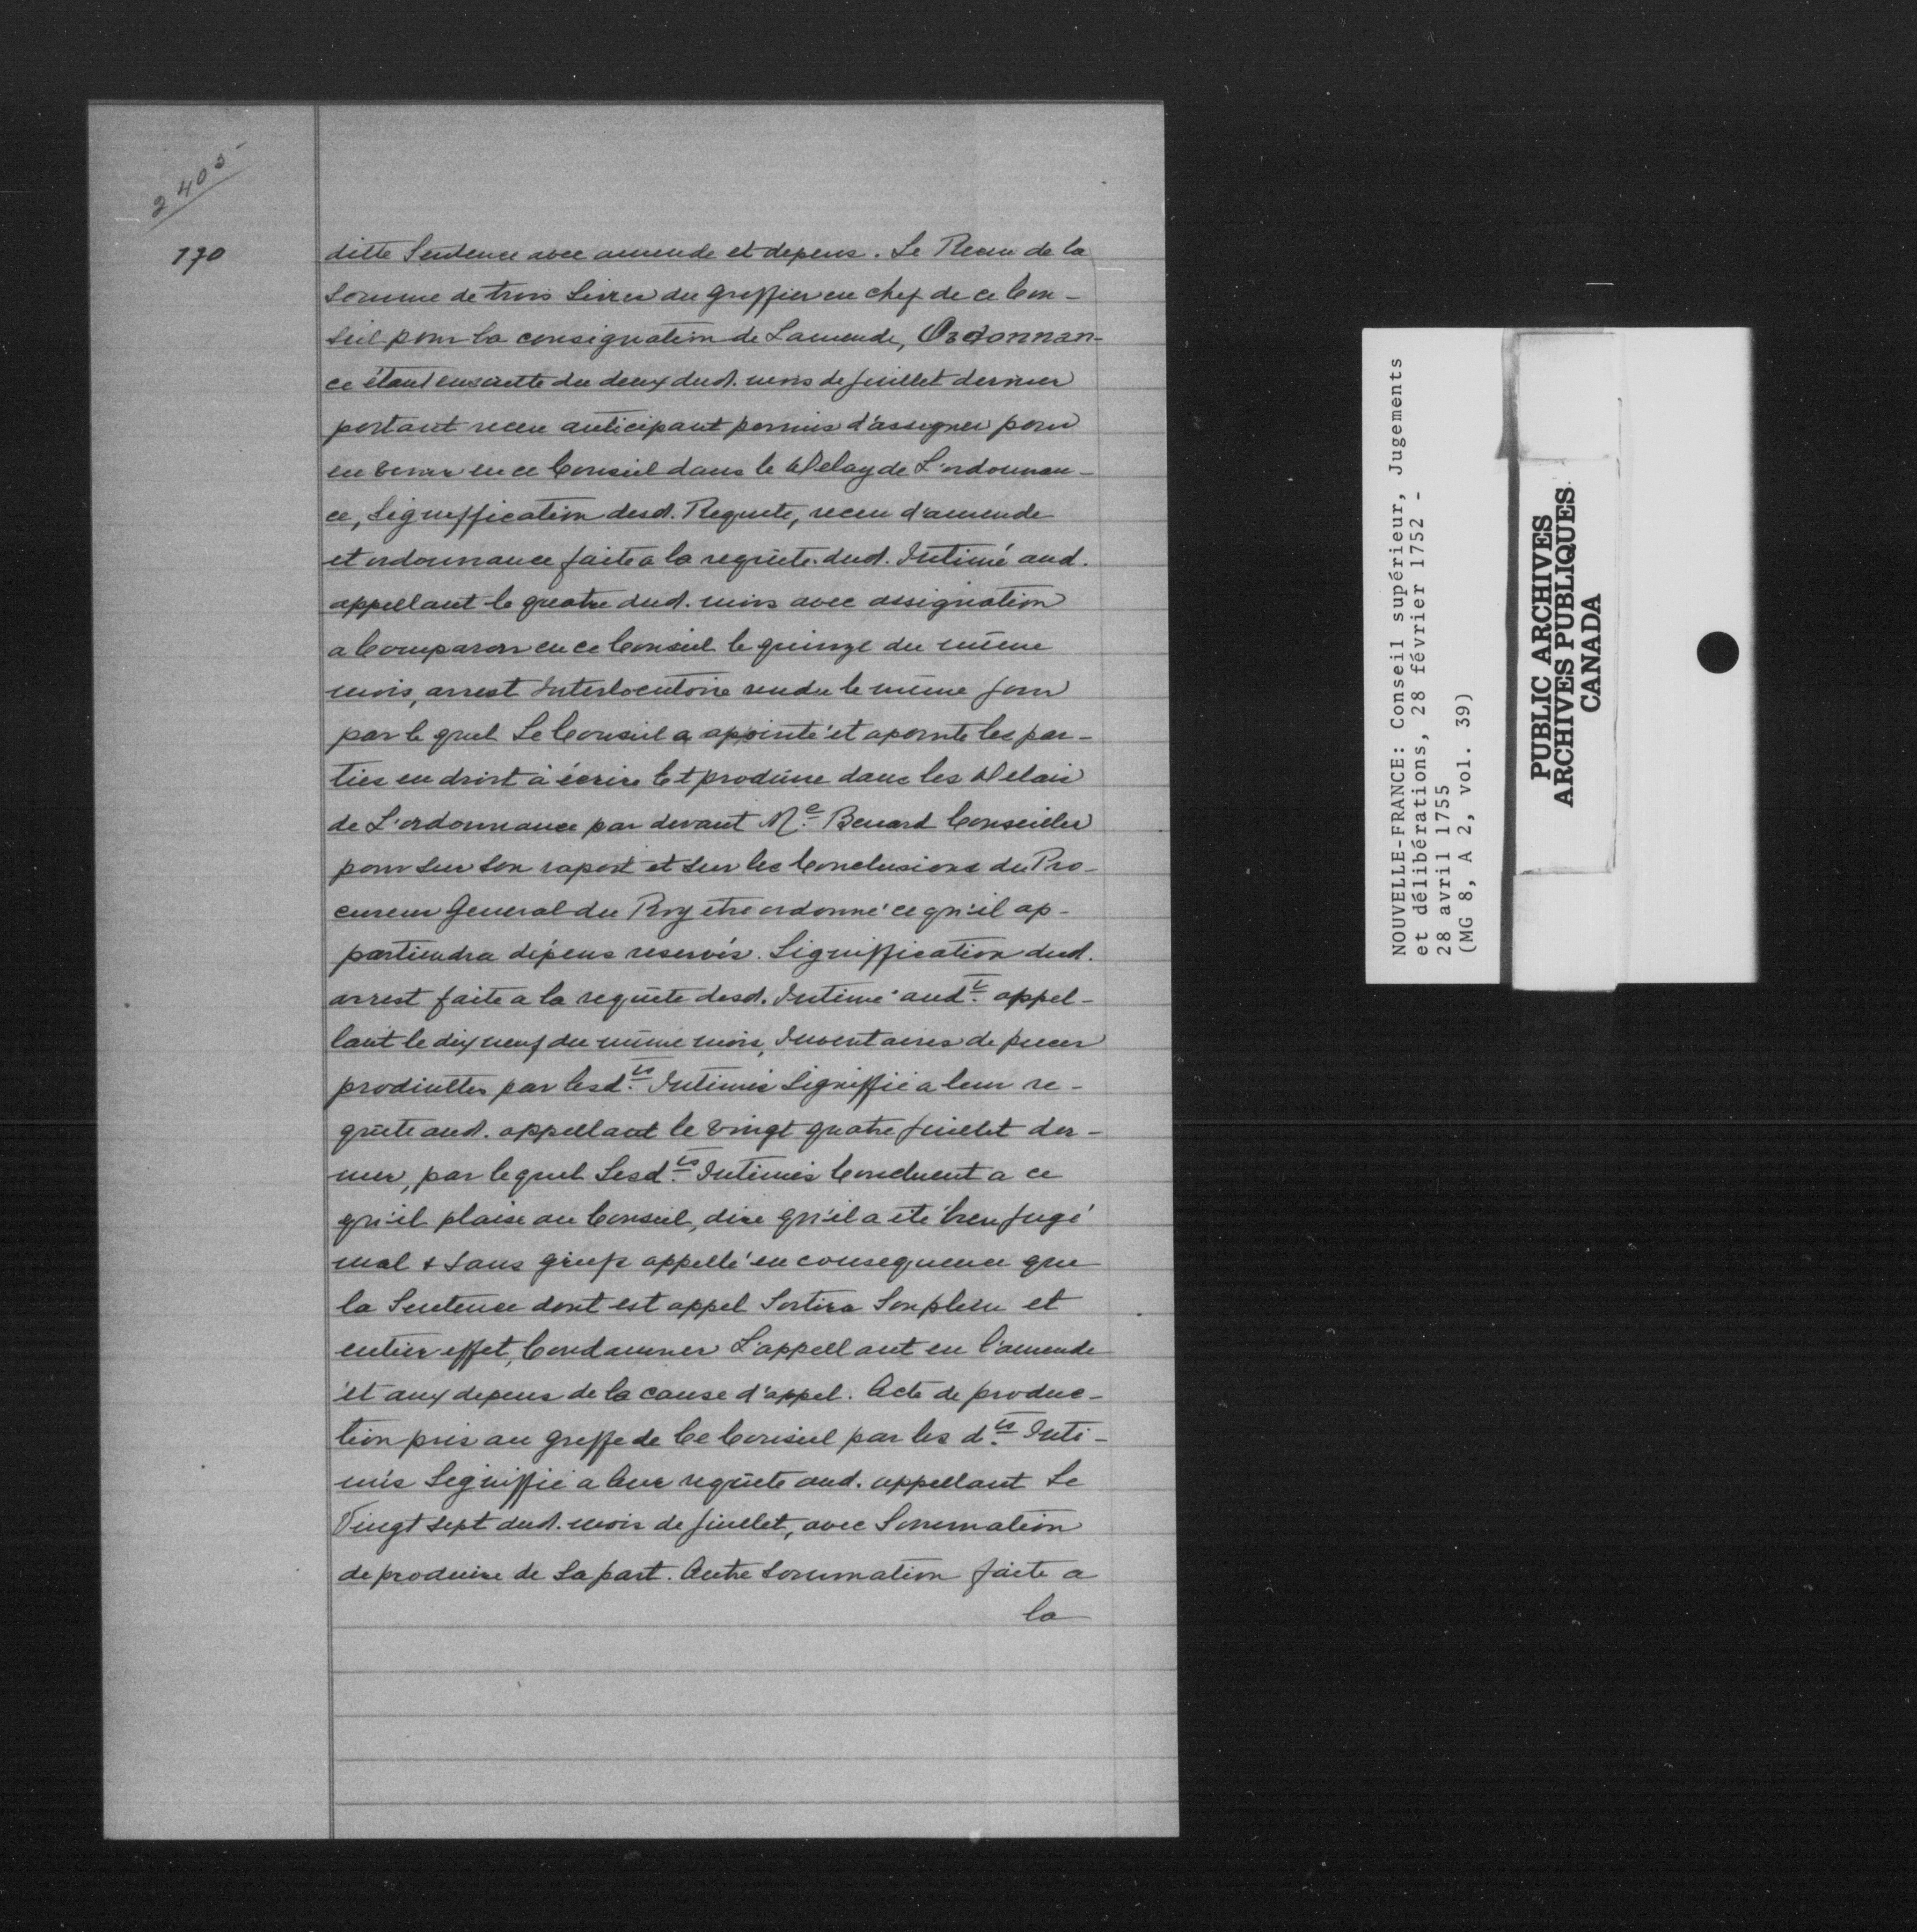 2403-
170
ditte Sentence avec amende et depens. Le Receu de la
Somme de trois Livres du greffier en chef de ce Con-
seil pour la consignation de Lamende, Ordonnan-
ce étant ensuitte du deux dud. mois de juillet dernier
portant receu anticipant permis d'assigner pour
en Venir en ce Conseil dans le delay de L'ordonnan-
ce, Signiffication desd. Requete, receu d'amende
et ordonnance faite a la requête dud. Intimé aud.
appellant le quatre dud. mois avec assignation
a Comparoir en ce Conseil le quinze du même
mois, arrest Interlocutoire rendu le même jour
par le quel Le Conseil a apointé et apointe les par-
ties en droit à écrire Et produire dans les delais
de L'ordonnance par devant Me. Benard Conseiller
pour sur son raport et sur les Conclusions du Pro-
cureur General du Roy etre ordonné ce qu'il ap-
partiendra dépens reservés. Signiffication dud.
arrest faite a la requête desd. Intimé aud.t appel-
lant le dix neuf du même mois, Inventaires de pieces
produittes par lesd.ts Intimés Signiffié a leur re-
quête aud. appellant le Vingt quatre juillet der-
nier, par lequel Lesd.ts Intimés Concluent a ce
qu'il plaise au Conseil, dire qu'il a été bien jugé
mal & sans griefs appellé en consequence que
la Sentence dont est appel Sortira Son plein et
entier effet, Condamner L'appellant en l'amende
et aux depens de la cause d'appel. Acte de produc-
tion pris au greffe de Ce Conseil par les d.ts Inti-
més Signiffié a leur requête aud. appellant Le
Vingt sept dud. mois de juillet, avec Sommation
de produire de Sa part. Autre Sommation faite a
la
NOUVELLE-FRANCE: Conseil supérieur, Jugements
et délibérations, 28 février 1752 -
28 avril 1755
(MG 8, A 2, vol. 39)
PUBLIC ARCHIVES
ARCHIVES PUBLIQUES
CANADA